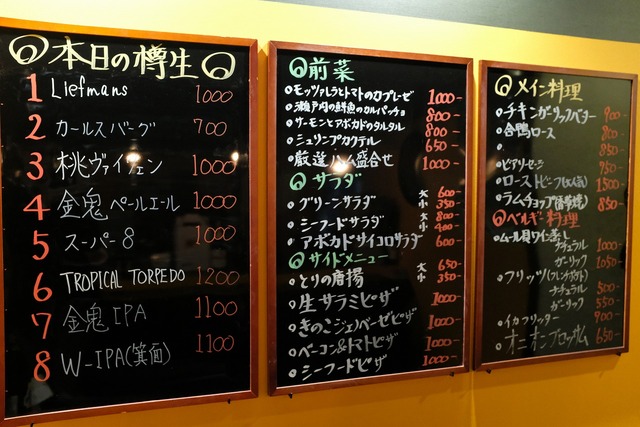 本日の樽生
1 Liefmans 1000
2 カールスバーグ 700
3 桃ヴァイツェン 1000
4 金鬼ペールエール 1000
5 スーパー8 1000
6 TROPICAL TORPEDO 1200
7 金鬼IPA 1100
8 W-IPA(箕面) 1100
前菜
モッツァレラとトマトのカプレーゼ 1000-
瀬戸内の鮮魚のカルパッチョ 800-
サーモンとアボカドのタルタル 800-
シュリンプカクテル 650-
厳選ハム盛合せ 1000-
サラダ
グリーンサラダ 大 600- 小 350-
シーフードサラダ 大 800- 小 400-
アボカドサイコロサラダ 600-
サイドメニュー
とりの唐揚 大 650- 小 350-
生サラミピザ 1000-
きのこジェノベーゼピザ 1000-
ベーコン&トマトピザ 1000-
シーフードピザ 1000-
メイン料理
チキンガーリックバター 900-
合鴨ロース 800-
ビアソーセージ 950-
ローストビーフ 1500-
ラムチョップ 850-
ベルギー料理
ムール貝ワイン蒸し
ナチュラル 1000-
ガーリック 1050-
フリッツ(フレンチポテト)
ナチュラル 500-
ガーリック 550-
イカフリッター 900-
オニオンブロッサム 650-